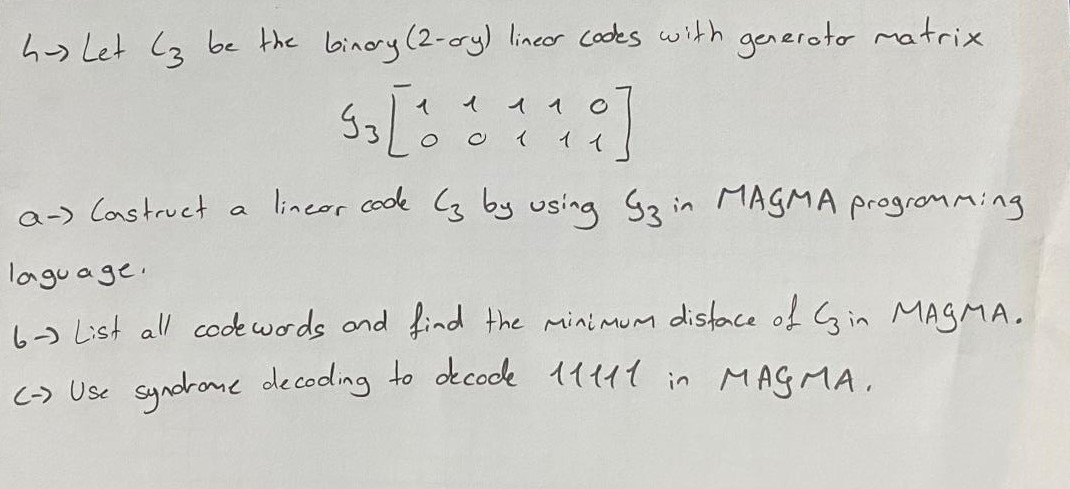 4-) Let C3 be the binary (2-ary) linear codes with generator matrix
G3 [ 1 1 1 1 0
0 0 1 1 1 ]
a-) Construct a linear code C3 by using G3 in MAGMA programming
laguage.
b-) List all codewords and find the minimum distace of C3 in MAGMA.
c-) Use syndrome decoding to decode 11111 in MAGMA.